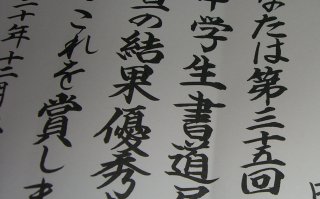 なたは第三十五回
学生書道
の結果優秀
これを賞しま
二十年十二月